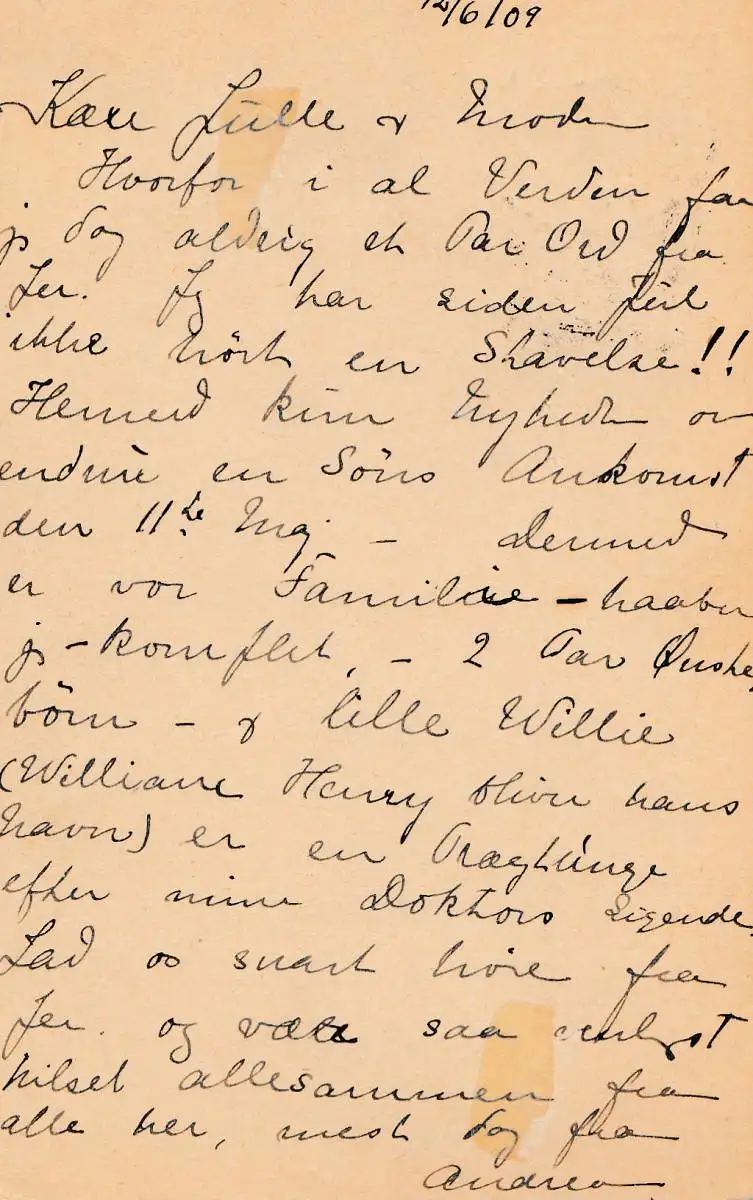 12/6/09
Kære Lulle & Moder
Hvorfor i al Verden faar
jg dog aldrig et Par Ord fra
Jer. Jg har siden Jul
ikke hört en Stavelse!!
Hermed kun Nyheden om
endnu en Söns Ankomst
den 11te Maj – dermed
er vor Familie – haaber
jg – komplet, – 2 Par Ønske
börn – & lille Willie
(William Henry bliver hans
Navn) er en Prægtunge
efter mine Doktors Sigende.
Lad os snart höre fra
Jer. og være saa venligst
hilset allesammen fra
alle her, mest dog fra
Andrea